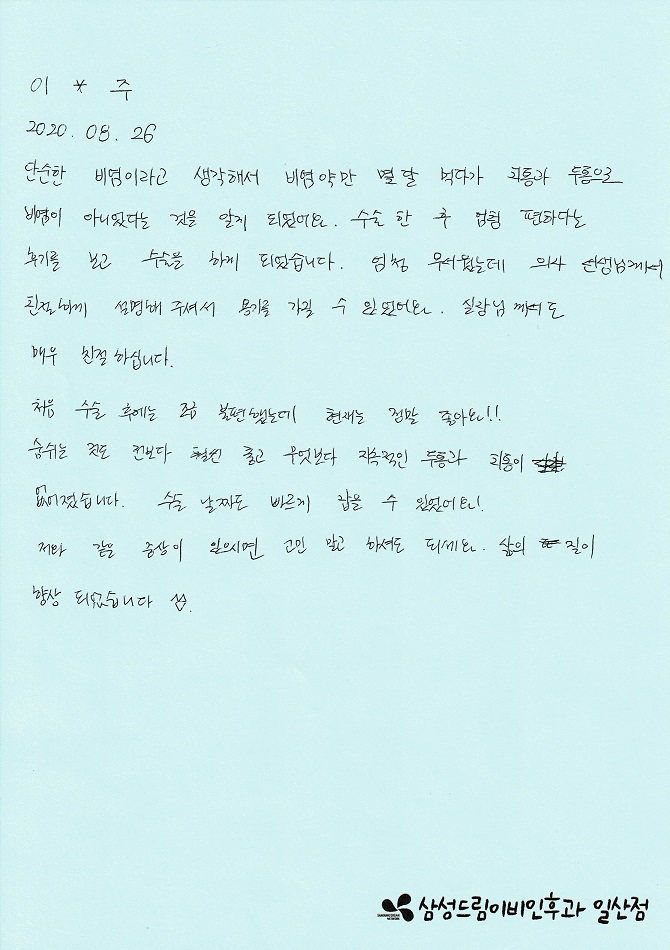 이 * 주
2020. 08. 26
단순한 비염이라고 생각해서 비염약만 몇달 먹다가 두통으로
비염이 아니었다는 것을 알게 되었어요. 수술 한 후 엄청 편하다는
후기를 보고 수술을 하게 되었습니다. 엄청 무서웠는데 의사 선생님께서
친절하게 설명해 주셔서 용기를 가질 수 있었어요. 실장님께서도
매우 친절하십니다.
처음 수술 후에는 조금 불편했는데 현재는 정말 좋아요!!
숨쉬는 것도 전보다 훨씬 좋고 무엇보다 지속적인 두통과
없어졌습니다. 수술 날짜도 빠르게 잡을 수 있었어요!
저와 같은 증상이 있으시면 고민 말고 하셔도 되세요. 삶의 질이
향상 되었습니다
삼성드림이비인후과 일산점